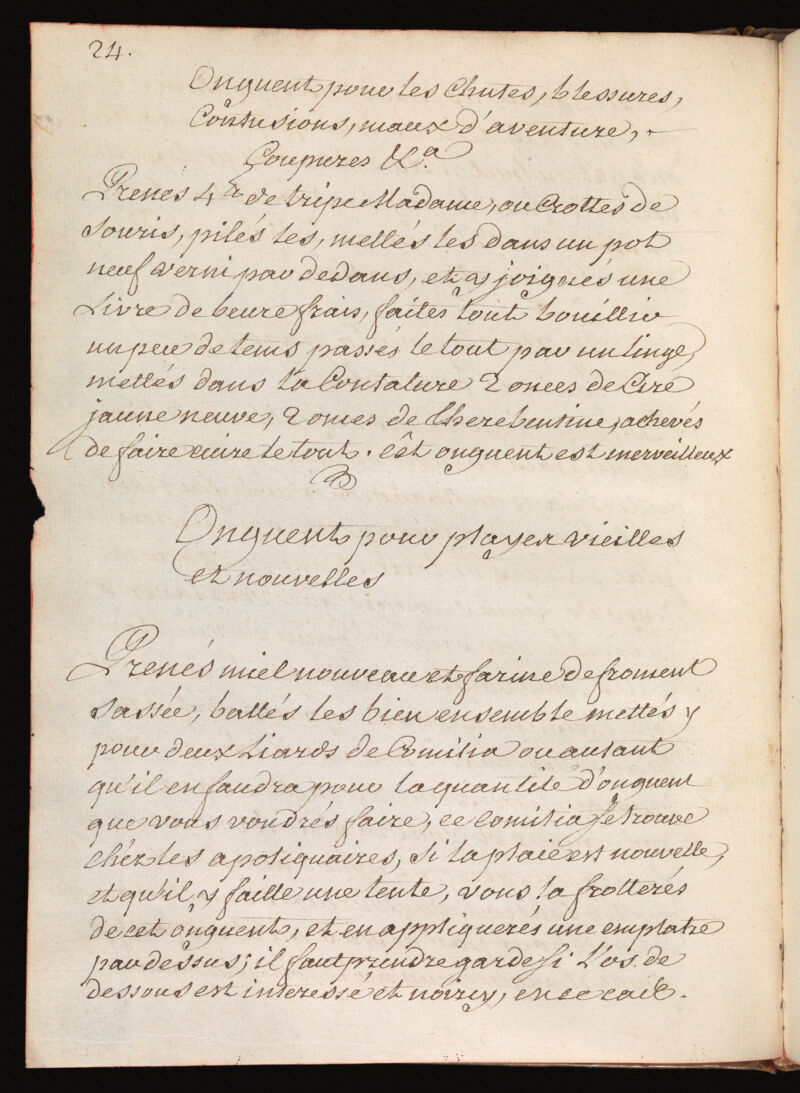 24.
Onguent pour les Chutes, blessures,
Contusions, maux d'aventure,
Coupures &c.a
Prenés 4 de tripe Madame, ou Crottes de
Souris, pilés les, mettés les dans un pot
neuf verni par dedans, et y joignés une
Livre de beure frais, faites tout bouillir
un peu de tems passés le tout par un linge,
mettés dans la Contature 2 onces de Cire
jaune neuve, 2 onces de Therebentine, achevés
de faire cuire le tout. cêt onguent est merveilleux
Onguent pour playes vieilles
et nouvelles
Prenés miel nouveau et farine de froment
Sassée, battés les bien ensemble mettés y
pour deux Liards de Comitia ou autant
qu'il en faudra pour la quantité d'onguent
que vous voudrés faire, ce Comitia se trouve
chéz les apotiquaires, Si la plaie est nouvelle,
et qu'il y faille une tente, vous la frotterés
de cet onguent, et en appliquerés une emplatre
par dessus; il faut prendre garde si L'os de
dessous est interessé et noircy, en ce cas